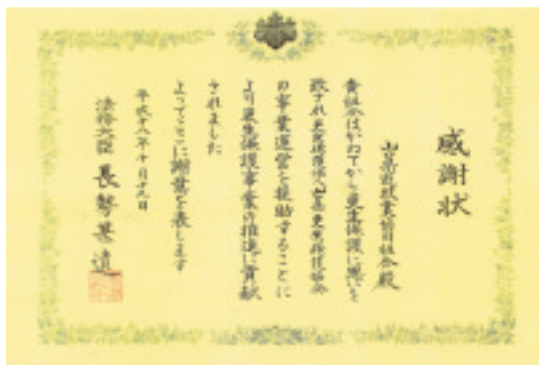 感謝状
貴組合はかねてから更生保護に思いを
の事業運営を援助することに
より更生保護事業の推進に貢献
されました
よってここに謝意を表します
平成十八年十月十九日
法務大臣 長勢甚遠